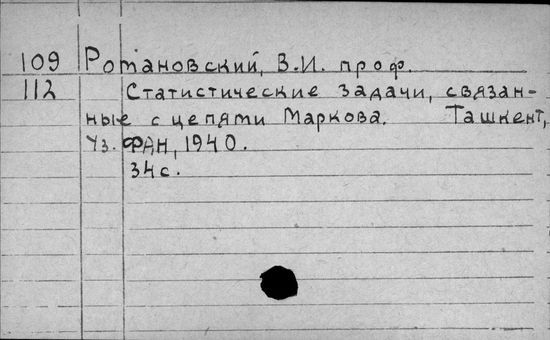 109 Романовский, В.И. проф.
112 Статистические задачи, связан-
ные с цепями Маркова. Ташкент,
Уз. ФАН, 1940.
34с.